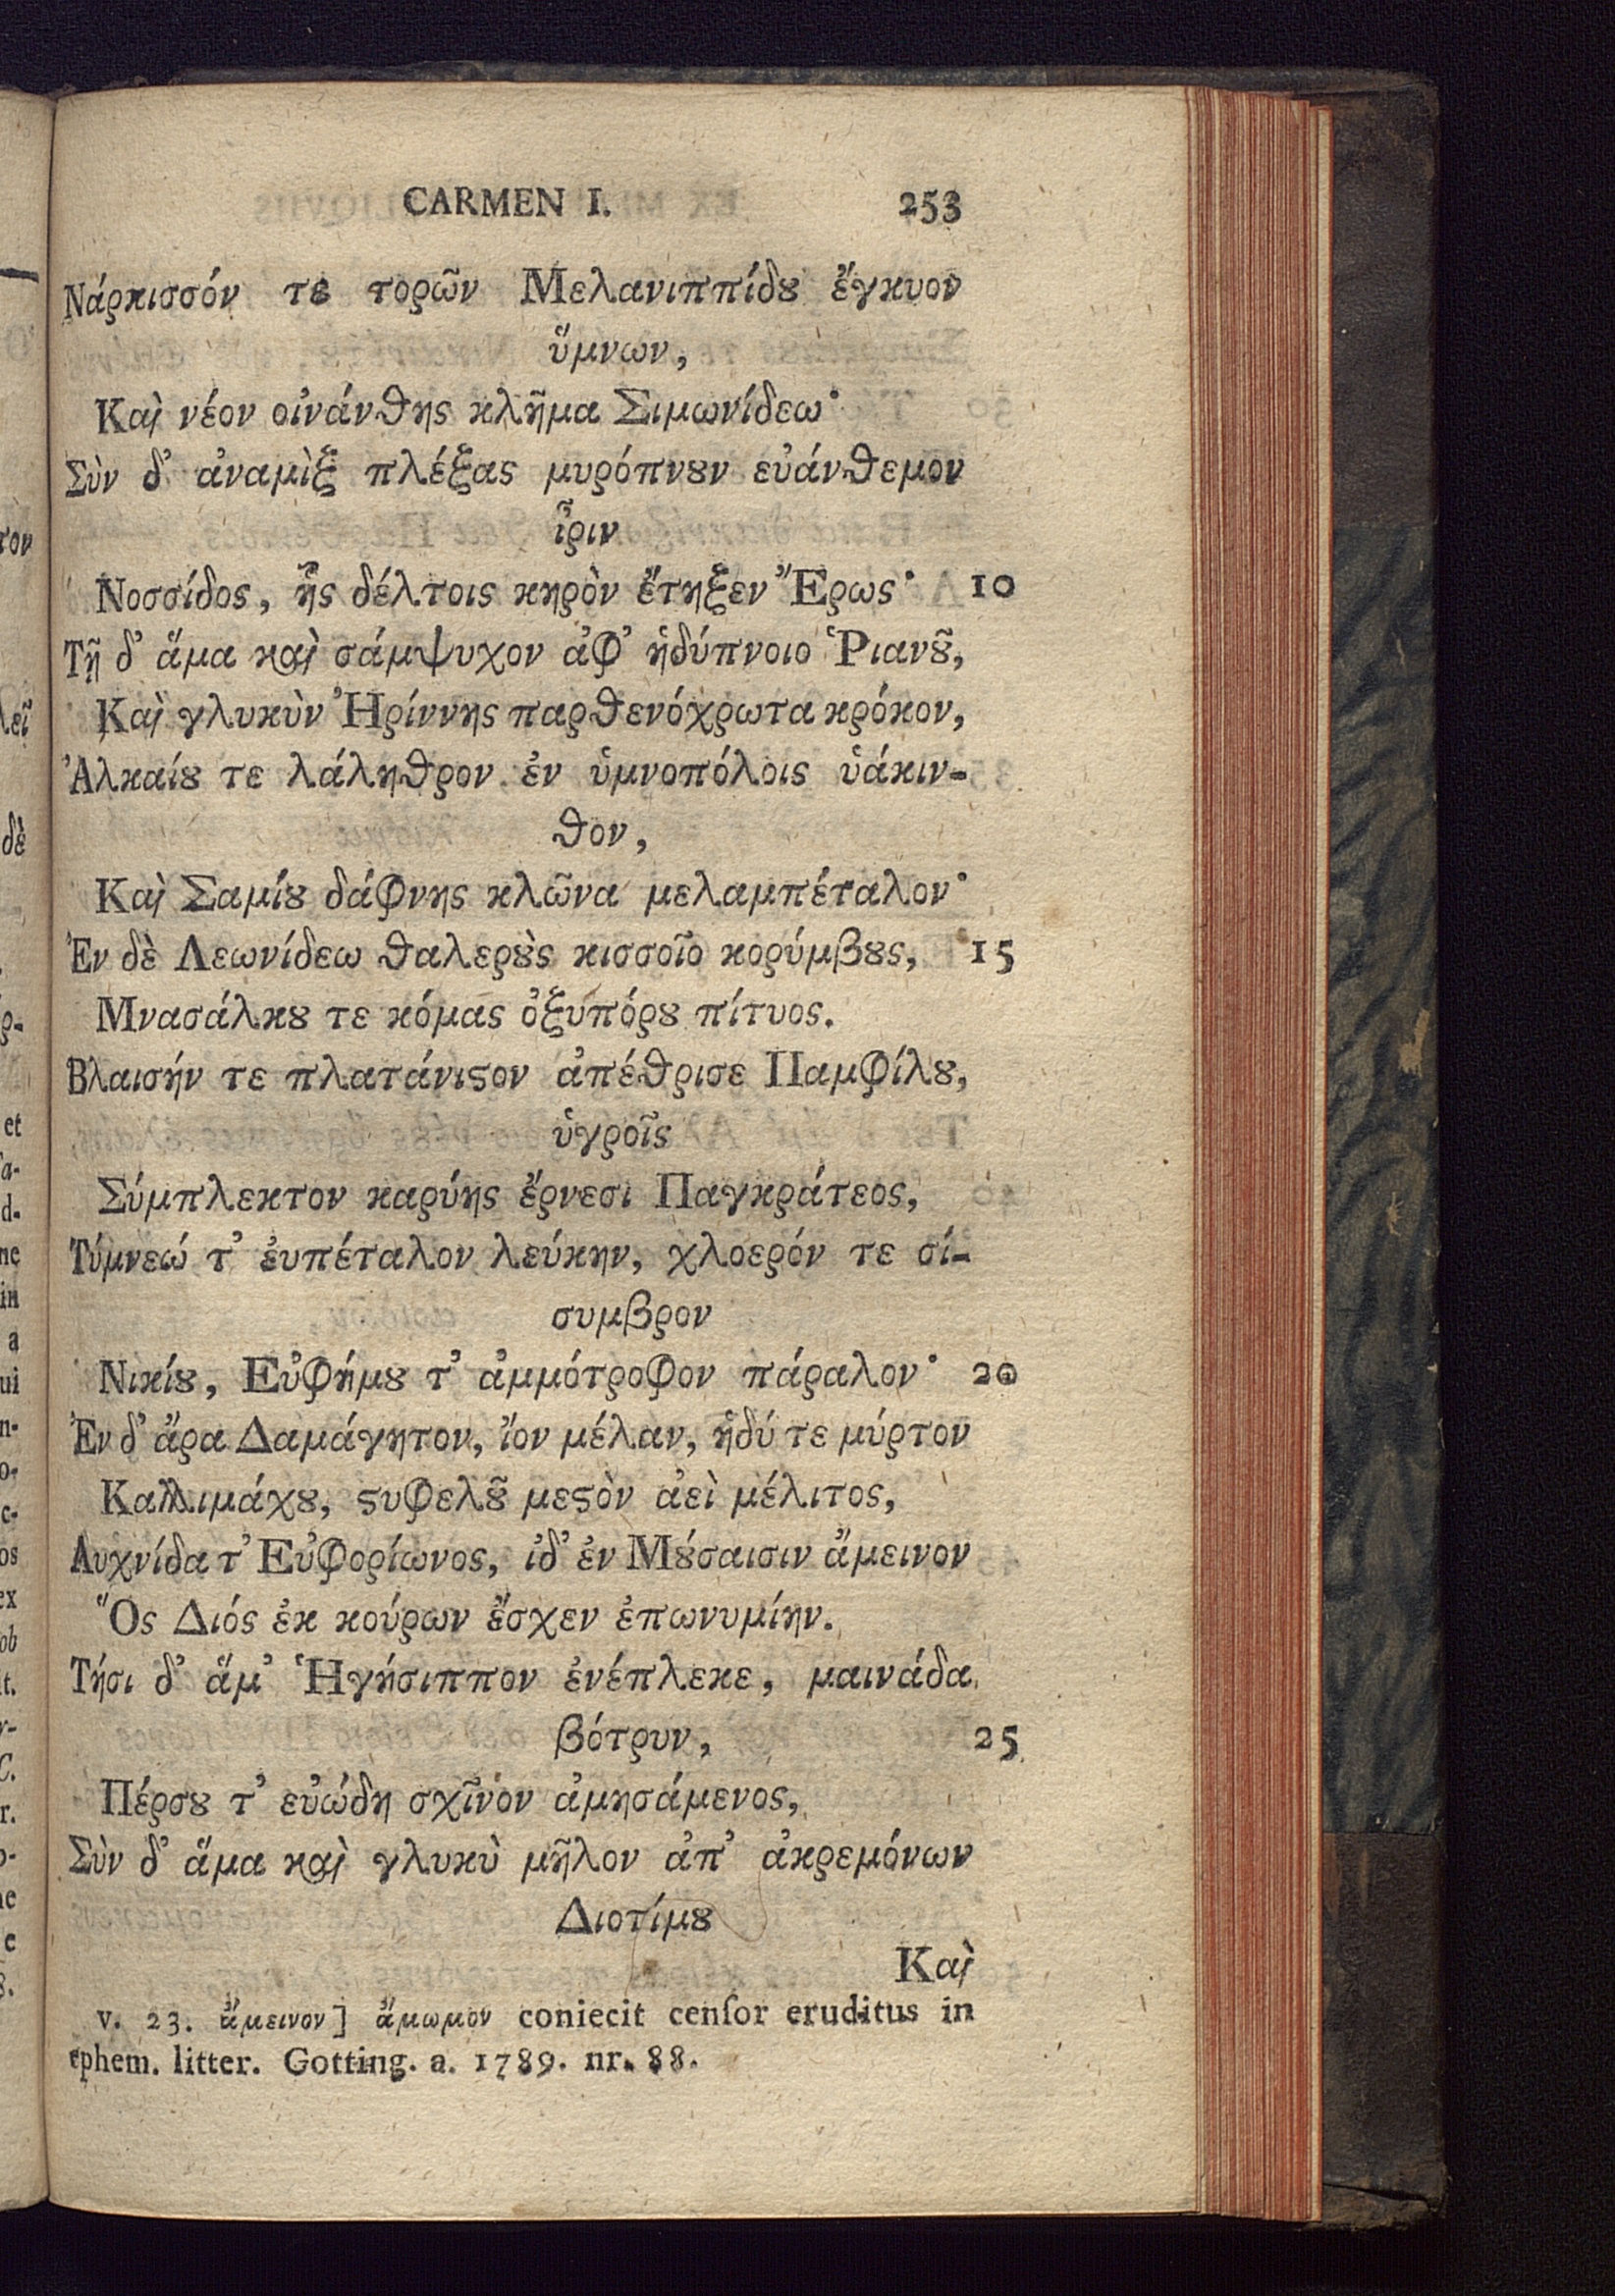 CARMEN I. 253
Νάρκισσόν τε τορῶν Μελανιππίδȣ ἔγκυον
ὕμνων,
Καὶ νέον οἰνάνθης κλῆμα Σιμωνίδεω·
Σὺν δ' ἀναμὶξ πλέξας μυρόπνȣν εὐάνθεμον
ἶριν
Νοσσίδος, ἧς δέλτοις κηρὸν ἔτηξεν Ἔρως· 10
Τῇ δ' ἅμα καὶ σάμψυχον ἀφ' ἡδύπνοιο Ῥιανȣ͂,
Καὶ γλυκὺν Ἠρίννης παρθενόχρωτα κρόκον,
Ἀλκαίȣ τε λάληθρον ἐν ὑμνοπόλοις ὑάκιν-
θον,
Καὶ Σαμίȣ δάφνης κλῶνα μελαμπέταλον·
Ἐν δὲ Λεωνίδεω θαλερȣ̀ς κισσοῖο κορύμβȣς, 15
Μνασάλκȣ τε κόμας ὀξυπόρȣ πίτυος.
Βλαισήν τε πλατάνιϛον ἀπέθρισε Παμφίλȣ,
ὑγροῖς
Σύμπλεκτον καρύης ἔρνεσι Παγκράτεος,
Τύμνεώ τ' ἐυπέταλον λεύκην, χλοερόν τε σί-
συμβρον
Νικίȣ, Εὐφήμȣ τ' ἀμμότροφον πάραλον· 20
Ἐν δ' ἄρα Δαμάγητον, ἴον μέλαν, ἡδύ τε μύρτον
Καλλιμάχȣ, ϛυφελȣ͂ μεϛὸν ἀεὶ μέλιτος,
Λυχνίδα τ' Εὐφορίωνος, ἰδ' ἐν Μȣ́σαισιν ἄμεινον
Ὃς Διός ἐκ κούρων ἔσχεν ἐπωνυμίην.
Τῇσι δ' ἅμ' Ἡγήσιππον ἐνέπλεκε, μαινάδα
βότρυν, 25
Πέρσȣ τ' εὐώδη σχῖνον ἀμησάμενος,
Σὺν δ' ἅμα καὶ γλυκὺ μῆλον ἀπ' ἀκρεμόνων
Διοτίμȣ
Καὶ
v. 23. ἄμεινον] ἄμωμον coniecit cenſor eruditus in
ephem. litter. Gotting. a. 1789. nr. 88.